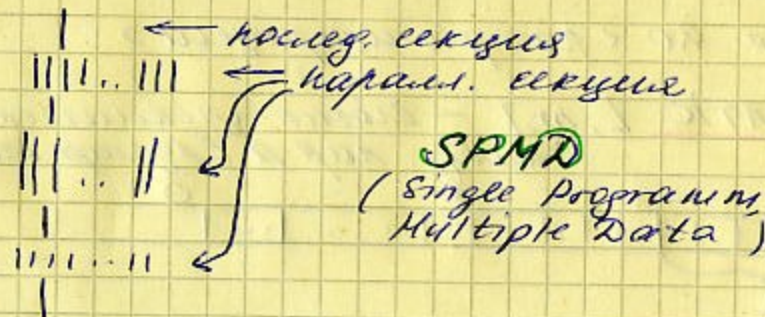 послед. секция
паралл. секция
SPMD
(Single Programm,
Multiple Data)